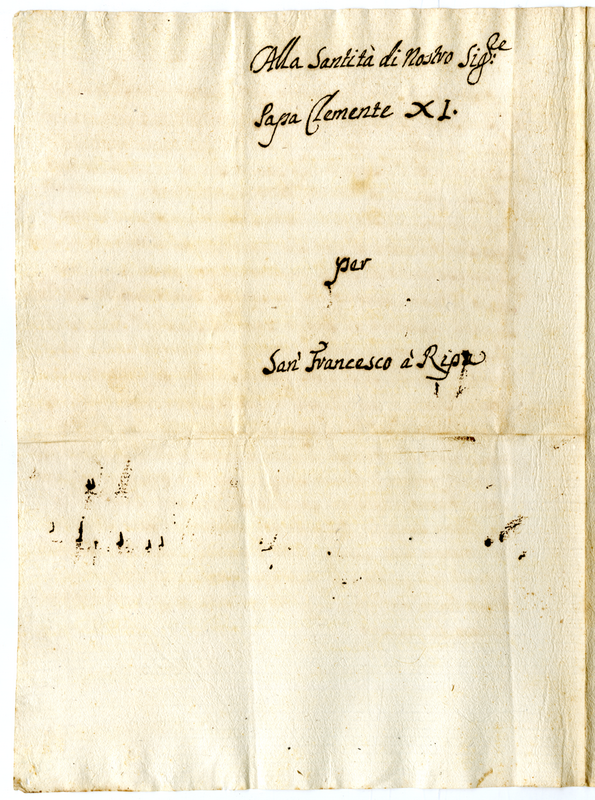 Alla Santità di Nostro Sig:re
Papa Clemente XI.
per
San' Francesco à Ripa